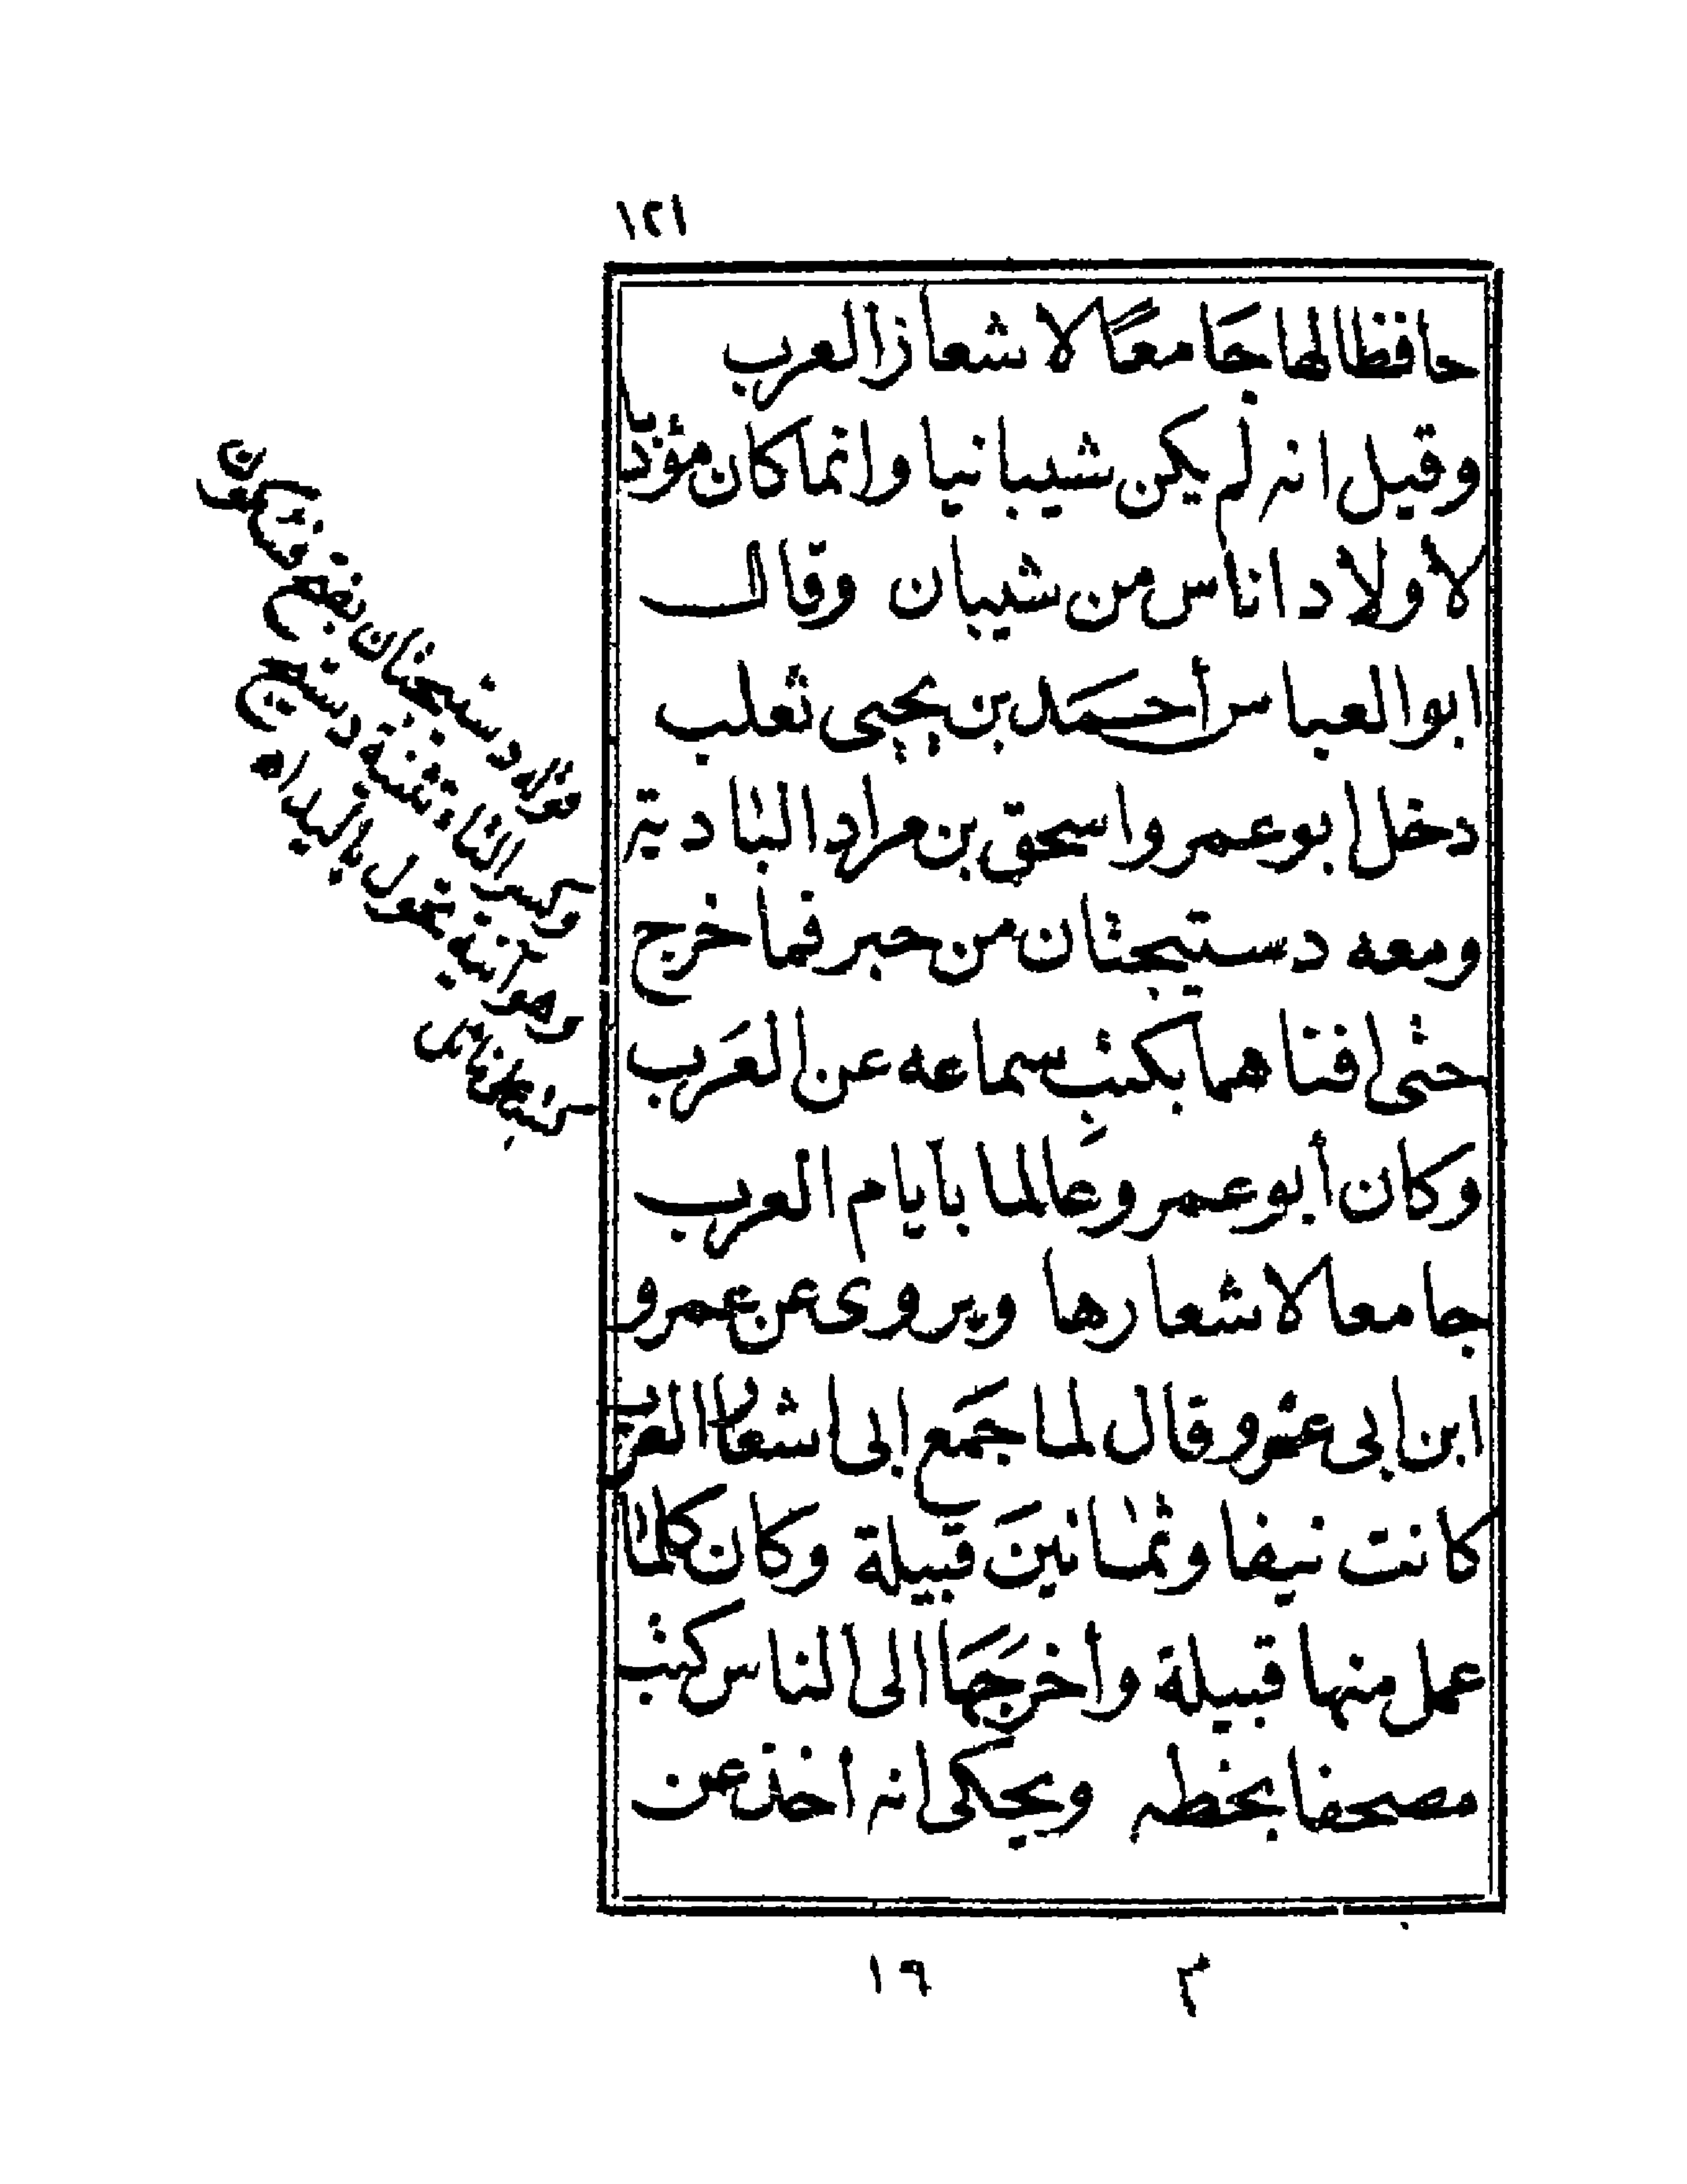 ١٢١
حافظا لها جَامعًا لاشعار العرب
وقيل انه لم يكن شيبانيا وانما كان مؤدبا
لأولاد اناس من شيبان وقال
ابو العباس أحمَد بن يحيى ثعلب
دخل ابو عمرو اسحق بن مراد البادية
ومعه دستيجتان من حبر فما خرج
حتى افناهما بكتبِ سماعه عن العَرب
وكان أبو عمرو عالما بأيام العرب
جامعا لاشعارها ويروى عن عمرو
ابن ابى عمرو قال لما جمَع ابى اشعار العرب
كانت نيفا وثمانينَ قبيلة وكان كلما
عمل منها قبيلة وأخرجَهَا الى الناس كتب
مصحفا بخطه ويحكى انه اخذ عن
١٦ م
قوله دستيجتان بفتح فسكون
وكسر التاء تثنية دستيج
وهو آنية تحول باليد اه